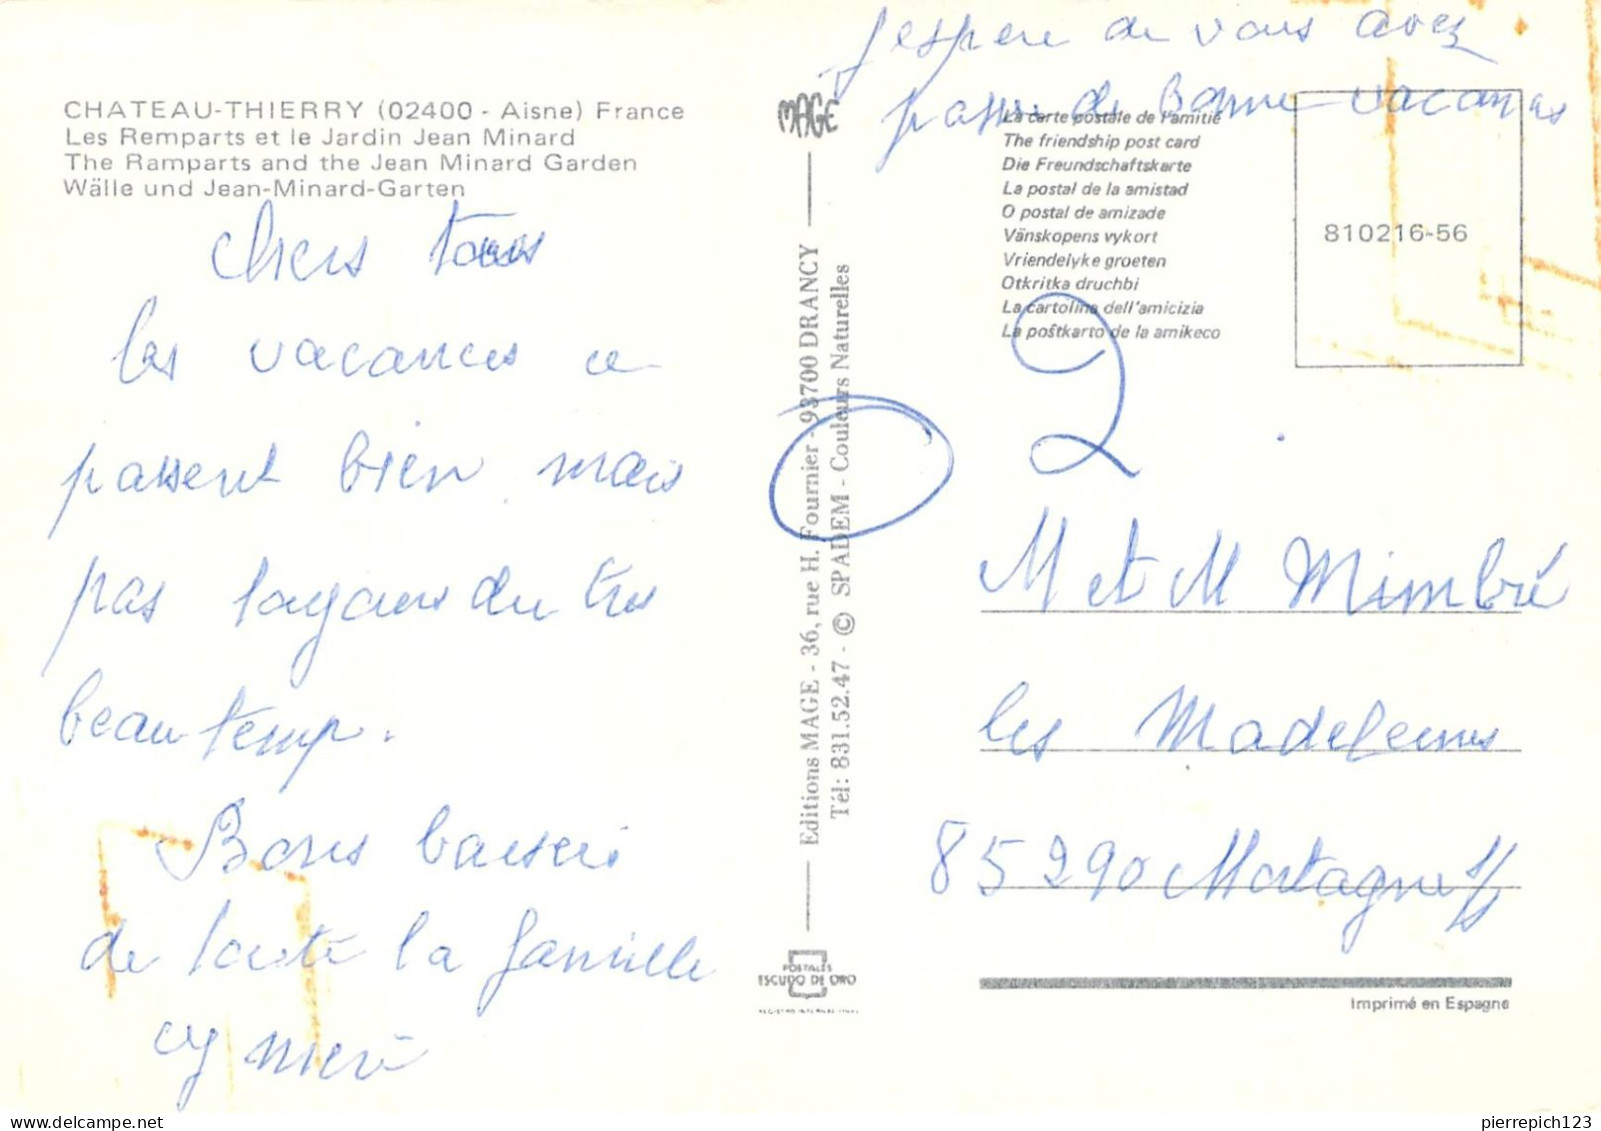 CHATEAU-THIERRY (02400 - Aisne) France
Les Remparts et le Jardin Jean Minard
The Ramparts and the Jean Minard Garden
Wälle und Jean-Minard-Garten
chers tous
les vacances ce
passent bien mais
pas toujours du très
beau temp.
Bons baisers
de toute la famille
MAGE
Editions MAGE - 36, rue H. Fournier - 93700 DRANCY
Tél: 831.52.47 - © SPADEM - Couleurs Naturelles
POSTALES
ESCUDO DE ORO
REGISTRO INTERNACIONAL
j'espere que vous avez
passer de Bonne vacances
La carte postale de l'amitié
The friendship post card
Die Freundschaftskarte
La postal de la amistad
O postal de amizade
Vänskopens vykort
Vriendelyke groeten
Otkritka druchbi
La cartolina dell'amicizia
La poŝtkarto de la amikeco
810216-56
2
M et M Mimbré
les Madeleines
85290 Mortagne s/s
Imprimé en Espagne
pierrepich123